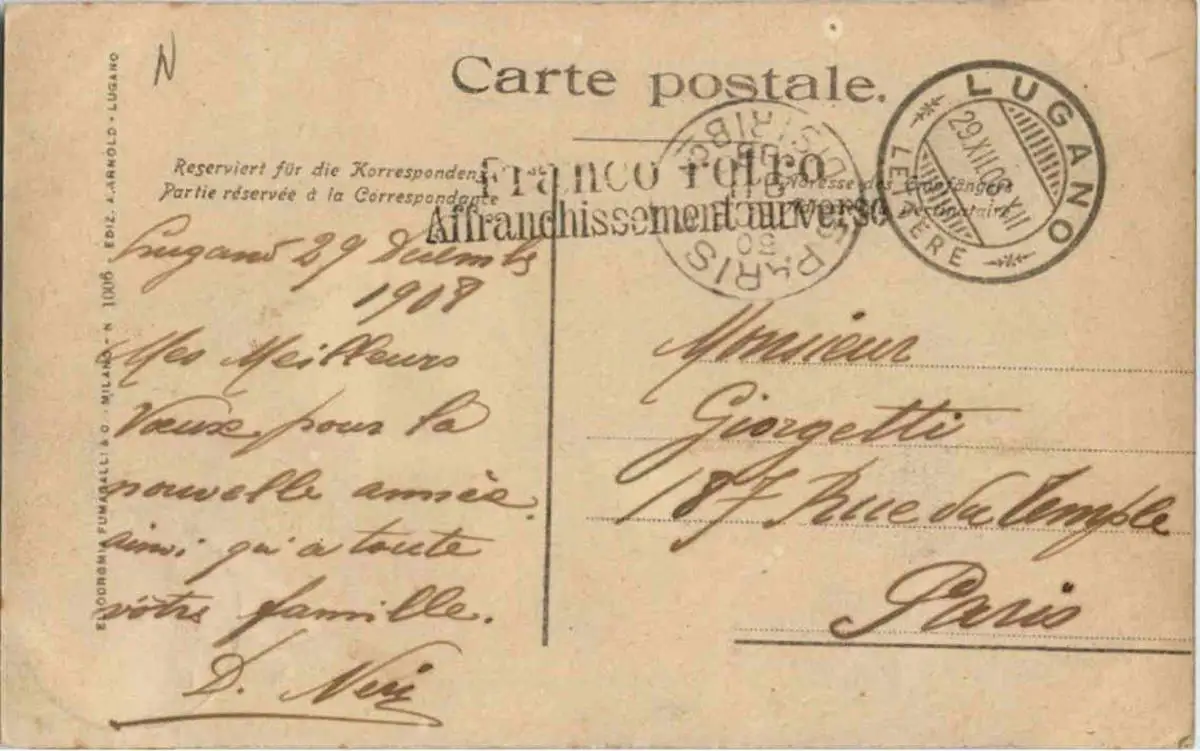 N
Carte postale.
Reserviert für die Korrespondenz
Partie réservée à la Correspondance
Adresse des Empfängers
Destinataire
Franco retro
Affranchissement au verso
LUGANO
29.XII.08.XII
LETTERE
PARIS
DISTRIB
EDIZ. A. ARNOLD · LUGANO
FUMAGALLI & C. · MILANO - N 1006 -
Lugano 29 Décembre
1908
Mes Meilleurs
Vœux pour la
nouvelle année.
ainsi qu'a toute
votre famille.
D. Neri
Monsieur
Giorgetti
187 Rue du Temple
Paris